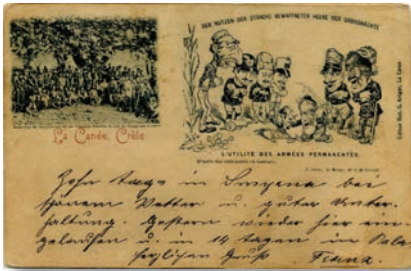 DER NUTZEN DER STÄNDIG BEWAFFNETEN HEERE DER GROSSMÄCHTE
La Canée, Crète
L'UTILITÉ DES ARMÉES PERMANENTES.
Zehn tage in Smyrna bei
schönem Wetter u. guter Unter-
haltung. Gestern wieder hier ein-
gelaufen u. in 14 tagen in Pola
herzlichen Gruß Franz.